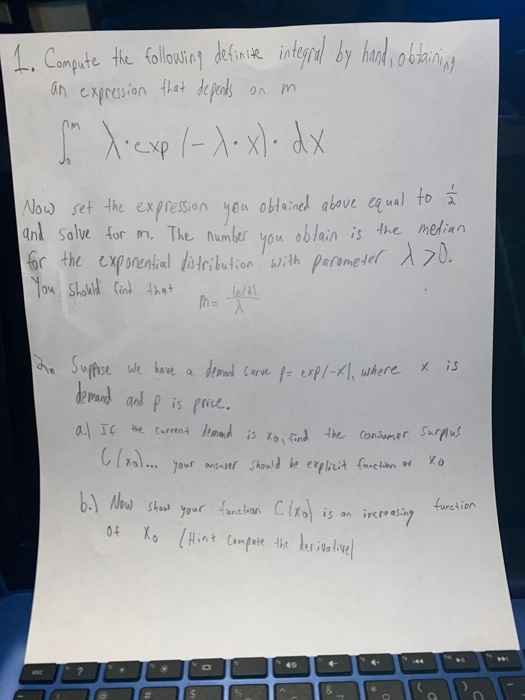 1. Compute the following definite integral by hand, obtaining
an expression that depends on m
∫₀ᵐ λ·exp(-λ·x)·dx
Now set the expression you obtained above equal to 1/2
and solve for m. The number you obtain is the median
for the exponential distribution with parameter λ>0.
You should find that m= ln(2)/λ
2. Suppose we have a demand curve p= exp(-x), where x is
demand and p is price.
a.) If the current demand is x₀, find the consumer surplus
C(x₀)... your answer should be explicit function of x₀
b.) Now show your function C(x₀) is an increasing function
of x₀ (Hint compute the derivative)
esc